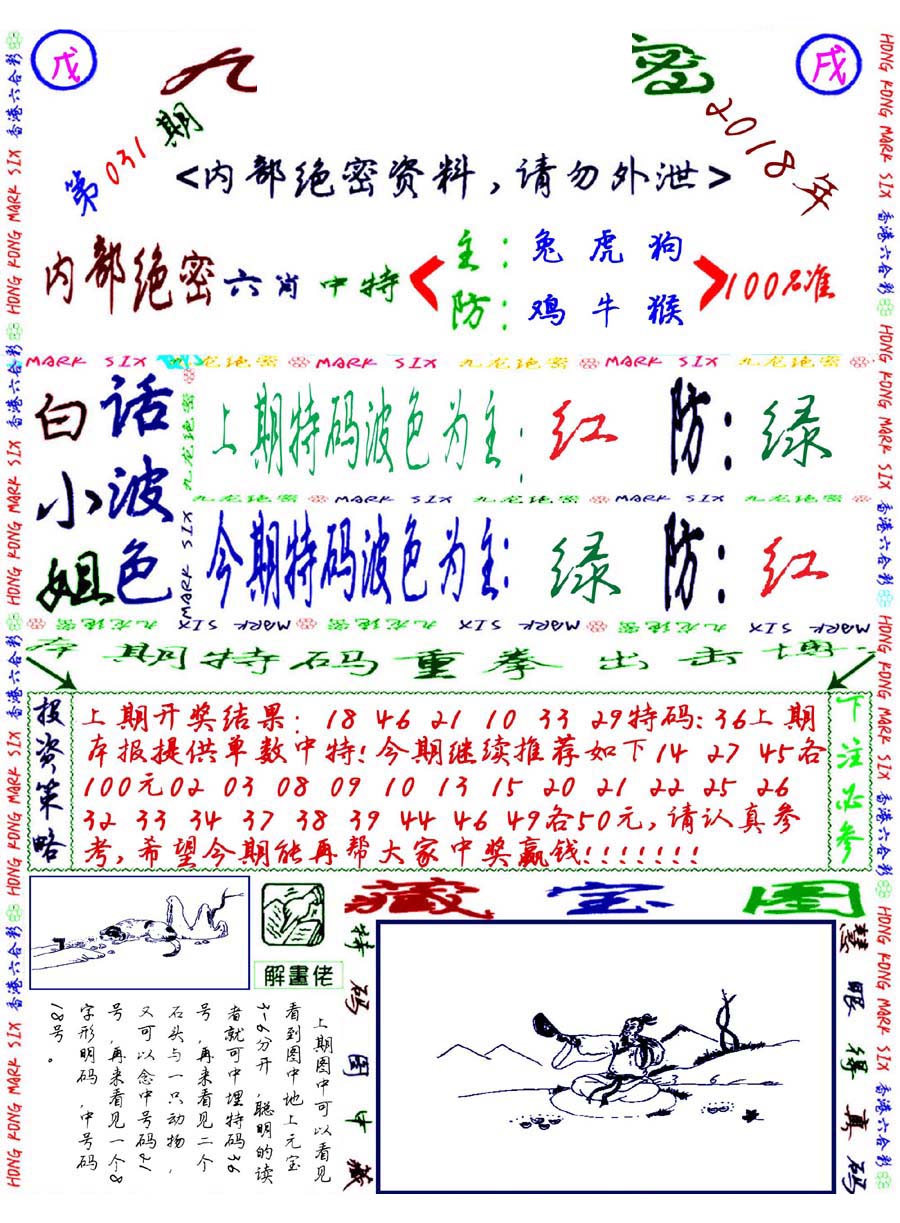 戊
九
密
戌
第031期
2018年
<内部绝密资料,请勿外泄>
内部绝密六肖中特
主:兔虎狗
防:鸡牛猴
100%准
MARK SIX 九龙绝密 MARK SIX 九龙绝密 MARK SIX 九龙绝密
白话
小波
姐色
上期特码波色为主:红 防:绿
九龙绝密 MARK SIX 九龙绝密 MARK SIX 九龙绝密
今期特码波色为主:绿 防:红
九龙绝密
MARK SIX
MARK SIX 九龙绝密 MARK SIX 九龙绝密 MARK SIX 九龙绝密
本期特码重拳出击博
投资策略
上期开奖结果: 18 46 21 10 33 29特码:36上期
本报提供单数中特!今期继续推荐如下14 27 45各
100元02 03 08 09 10 13 15 20 21 22 25 26
32 33 34 37 38 39 44 46 49各50元,请认真参
考,希望今期能再帮大家中奖赢钱!!!!!!!
下注必参
解畫佬
藏宝图
特码图中藏
慧眼得真码
3 6
上期图中可以看见
看到图中地上元宝
3-6分开,聪明的读
者就可中埋特码36
号,再来看见二个
石头与一只动物,
又可以念中号码21
号,再来看见一个8
字形明码,中号码
18号。
HONG KONG MARK SIX 香港六合彩 HONG KONG MARK SIX 香港六合彩 HONG KONG MARK SIX 香港六合彩 HONG KONG MARK SIX 香港六合彩
HONG KONG MARK SIX 香港六合彩 HONG KONG MARK SIX 香港六合彩 HONG KONG MARK SIX 香港六合彩 HONG KONG MARK SIX 香港六合彩